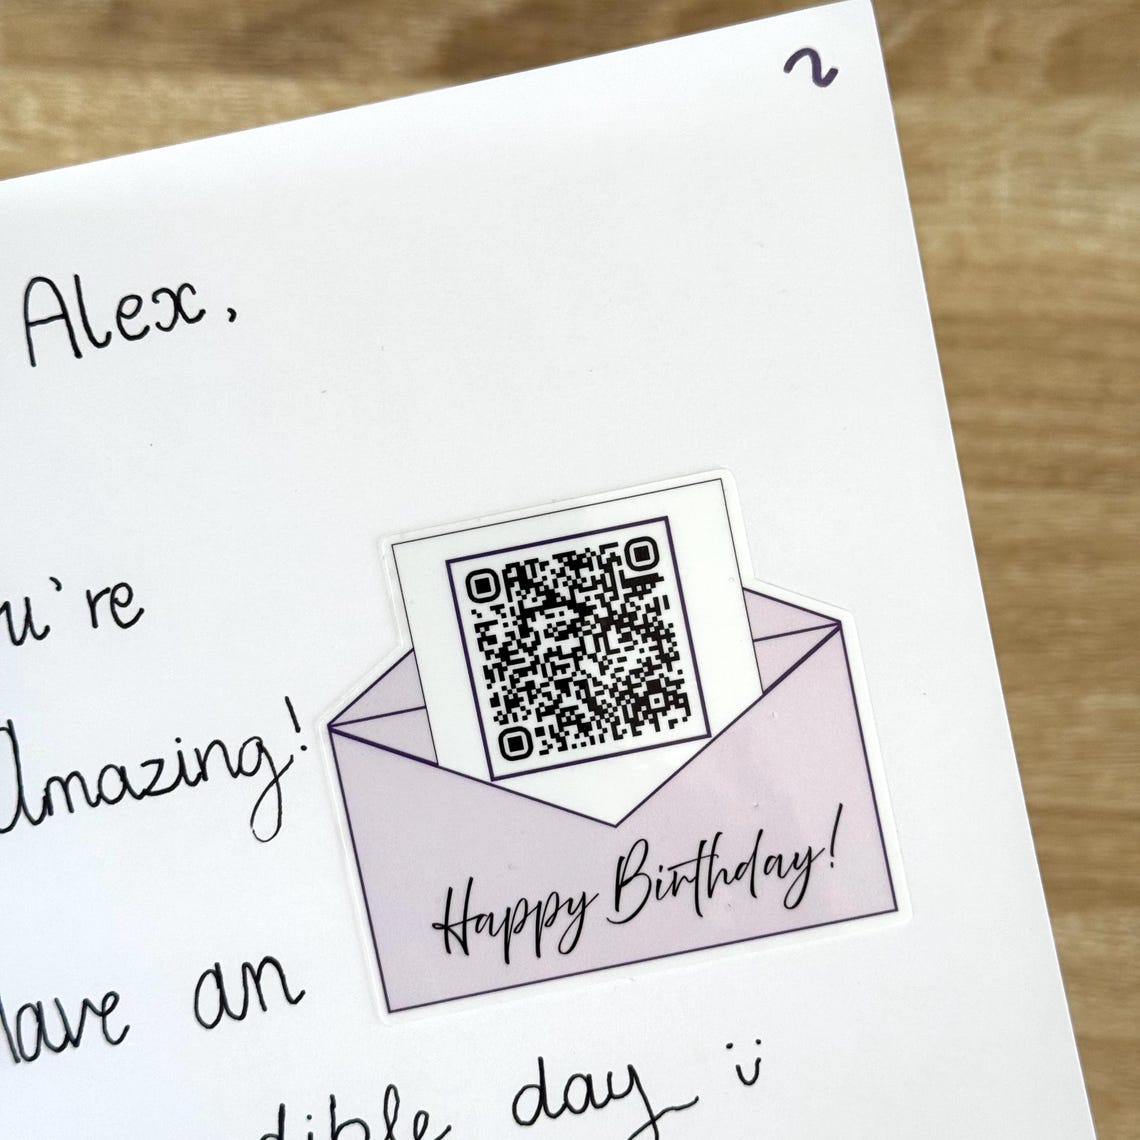 2
Alex,
u're
Amazing!
Happy Birthday!
ave an
dible day ü